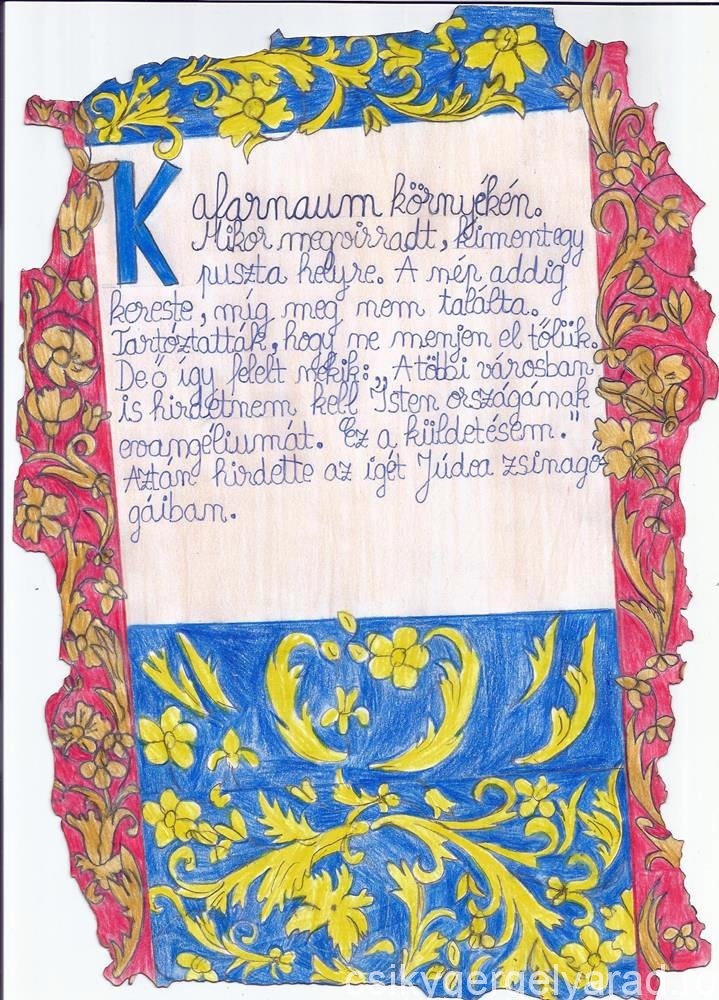 Kafarnaum környékén.
Mikor megvirradt, kimont egy
puszta helyre. A nép addig
kereste, míg meg nem találta.
Tartóztatták, hogy ne menjen el tőlük.
De ő így felelt nékik: „A többi városban
is hirdetnem kell Isten országának
evangéliumát. Ez a küldetésem."
Aztán hirdette az igét Júdea zsinago
gáiban.
csikygergelyarad